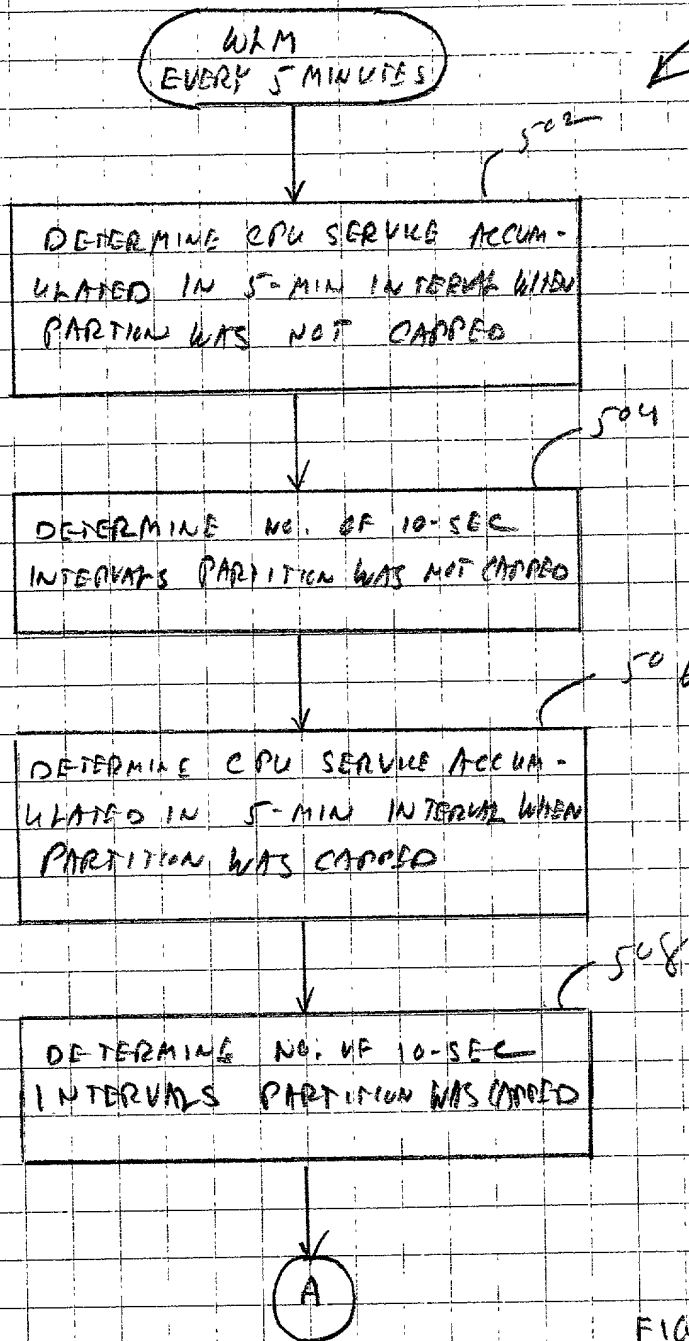 WLM
EVERY 5 MINUTES
502
DETERMINE CPU SERVICE ACCUM-
ULATED IN 5-MIN INTERVAL WHEN
PARTION WAS NOT CAPPED
504
DETERMINE NO. OF 10-SEC
INTERVALS PARTITION WAS NOT CAPPED
506
DETERMINE CPU SERVICE ACCUM-
ULATED IN 5-MIN INTERVAL WHEN
PARTITION WAS CAPPED
508
DETERMINE NO. OF 10-SEC
INTERVALS PARTITION WAS CAPPED
A
FIG